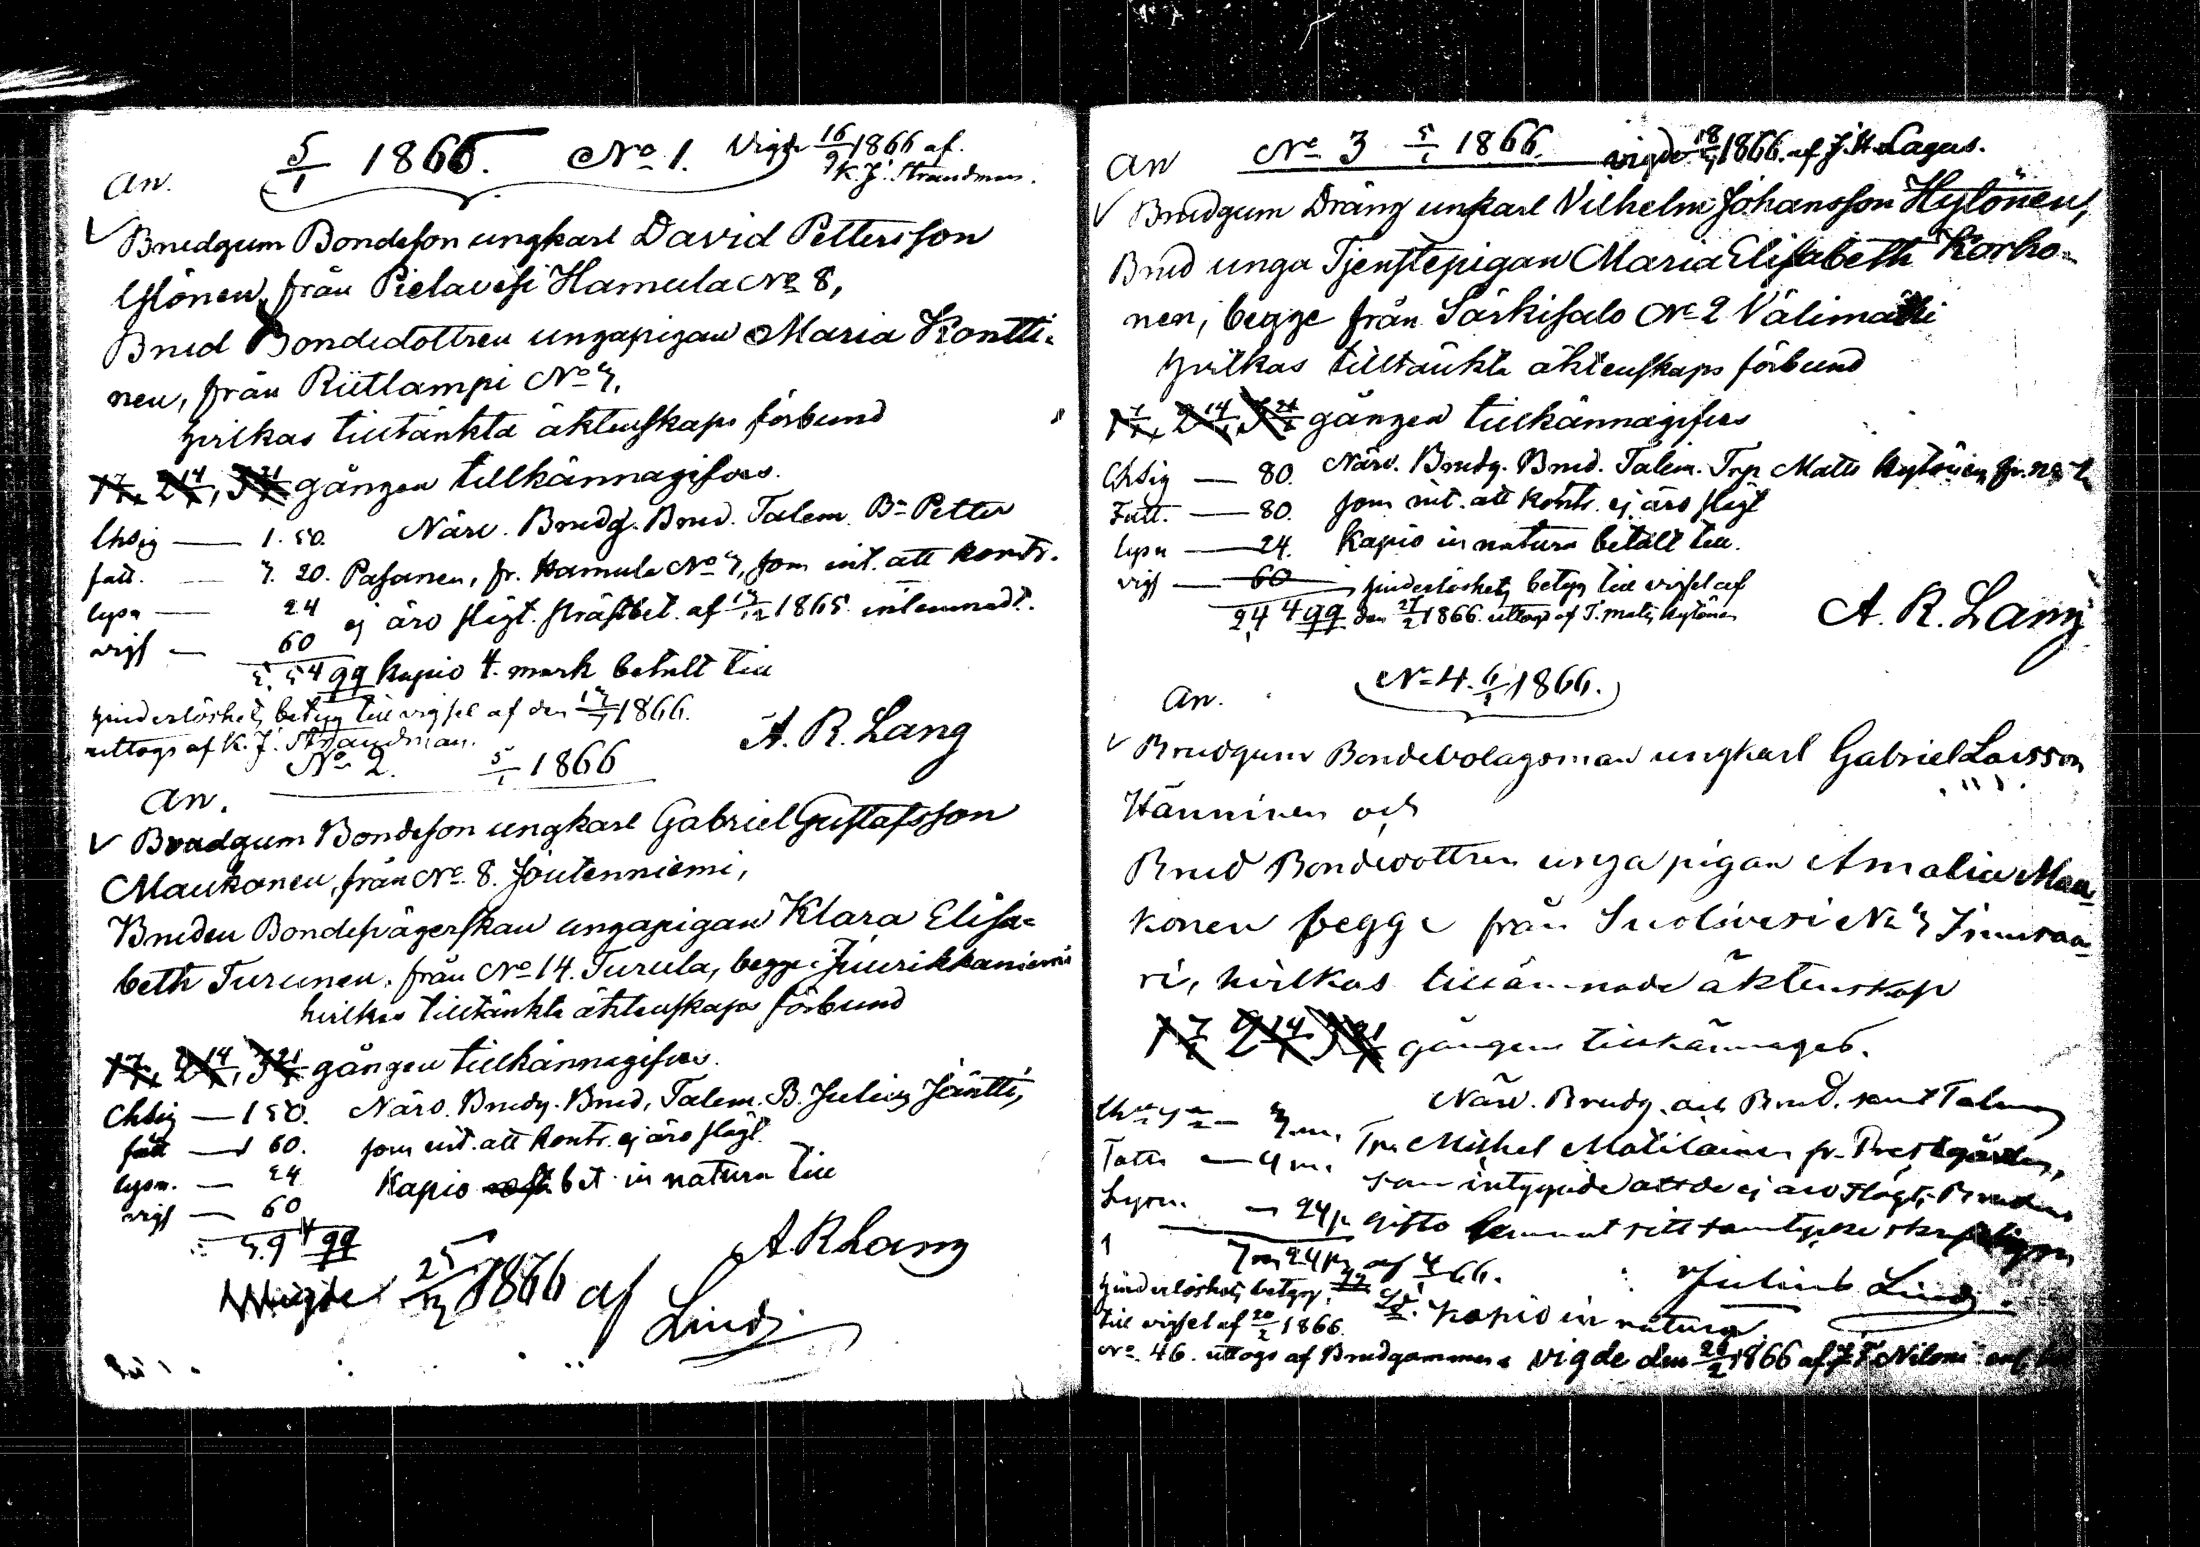 5/1 1866. No 1. Vigde 16/9 1866 af
K. J. Strandman.
An.
Brudgum Bondeson ungkarl David Pettersson
Ylönen, från Pielavesi Hamula No 8,
Brud Bondedottren ungapigan Maria Kontti-
nen, från Riitlampi No 7,
hvilkas tilltänkta äktenskaps förbund
1 7/1, 2 14/1, 3 21/1 gången tillkännagifves.
Chsig — 1. 50. Närv. Brudg. Brud. Talem. B. Petter
fatt. — 7. 20. Pasanen, fr. Hamula No 7, som int. att kontr.
lysn — 24 ej äro slägt. fräst bet. af 1865 inlemnadt.
vigs — 60
kapio 4. mark betalt till
hinderlöshets betyg till vigsel af den 1866.
uttogs af K. J. Strandman.
A. R. Lang
No 2. 5/1 1866
An.
Brudgum Bondeson ungkarl Gabriel Gustafsson
Maukonen, från No 8. Joutenniemi,
Bruden Bondesvägerskan ungapigan Klara Elisa-
beth Turunen, från No 14. Turula, begge Juurikkaniemi
hvilkas tilltänkta äktenskaps förbund
1 7/1, 2 14/1, 3 21/1 gången tillkännagifves.
Chsig — 1 50. Närv. Brudg. Brud, Talem. B. Julius Jäntti,
fatt — 1 60. som int. att kontr. ej äro slägt.
lysn. — 24 Kapio bet. in natura till
vigs — 60
A R Lang
Wigde 25/12 1866 af
Lind
An No 3 5/1 1866. vigde 18/3 1866. af J. H. Lagus.
Brudgum Dräng unkarl Vilhelm Johansson Hytönen,
Brud unga Tjenstepigan Maria Elisabeth Korho-
nen, begge från Särkisalo No 2 Välimätti
hvilkas tilltänkta äktenskaps förbund
1 7/1, 2 14/1, 3 21/1 gången tillkännagifves
Chsig — 80. Närv. Brudg. Brud. Talem. Trp Matts Hytönen, fr. No 2
Fatt. — 80. som int. att kontr. ej äro slägt
lysn — 24. Kapio in natura betalt till.
vigs — 60 hinderlöshets betyg till vigsel af
den 1866. uttogs af T. Matts Hytönen
A. R. Lang
No 4. 6/1 1866.
An.
Brudgum Bondebolagsman ungkarl Gabriel Larsson
Hänninen och
Brud Bondedottren unga pigan Amalia Mau-
konen begge från Suolivesi No 7 Iinunsaa-
ri, hvilkas tillämnade äktenskap
1 7/1 2 14/1 3 21/1 gången tillkännages.
Närv. Brudg. och Brud. samt Talem
Trp Mickel Matilainen fr. Prestgården,
Fatt — 4 m. som intygade att de ej äro slägt, Brudens
Lysn. — 24 p gifto lemnat sitt samtycke skriftligen
7 m 24 p af 4/1 66.
hinderlöshets betyg
till vigsel af 20/2 1866.
Kapio in natura
Julius Lind.
No 46. uttogs af Brudgummen vigde den 1866 af